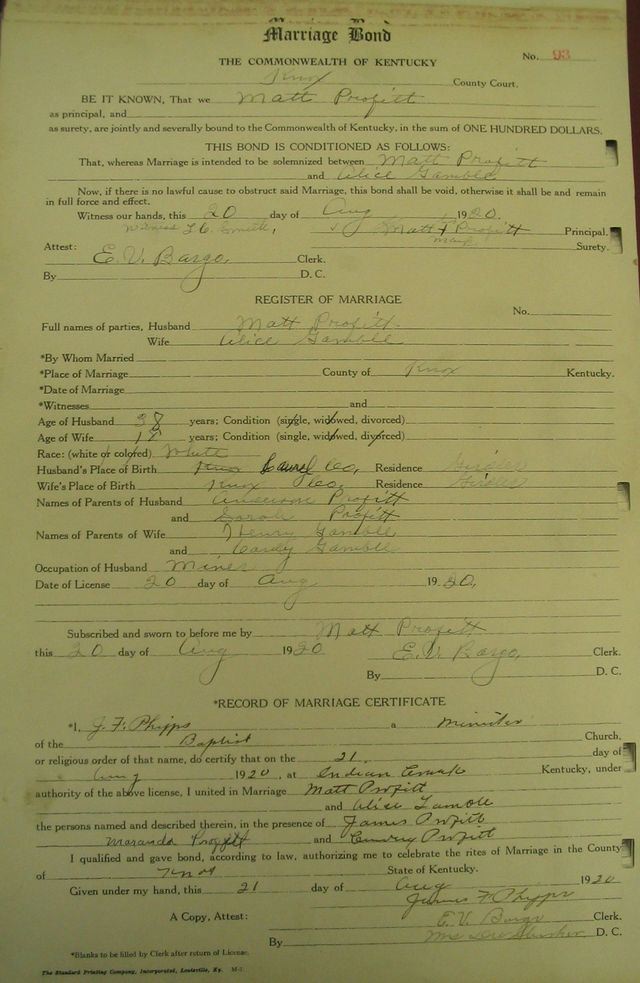 Marriage Bond
THE COMMONWEALTH OF KENTUCKY No. 93
Knox County Court.
BE IT KNOWN, That we Matt Profitt
as principal, and
as surety, are jointly and severally bound to the Commonwealth of Kentucky, in the sum of ONE HUNDRED DOLLARS.
THIS BOND IS CONDITIONED AS FOLLOWS:
That, whereas Marriage is intended to be solemnized between Matt Profitt
and Alice Gamble
Now, if there is no lawful cause to obstruct said Marriage, this bond shall be void, otherwise it shall be and remain
in full force and effect.
Witness our hands, this 20 day of Aug 1920.
Witness Matt X Profitt Principal.
mark
Attest: Surety.
E. V. Bargo, Clerk.
By D. C.
REGISTER OF MARRIAGE
No.
Full names of parties, Husband Matt Profitt
Wife Alice Gamble
*By Whom Married
*Place of Marriage County of Knox Kentucky.
*Date of Marriage
*Witnesses and
Age of Husband 38 years; Condition (single, widowed, divorced)
Age of Wife years; Condition (single, widowed, divorced)
Race: (white or colored) White
Husband's Place of Birth Laurel Co, Residence Girdler
Wife's Place of Birth Knox Co. Residence Girdler
Names of Parents of Husband Anderson Profitt
and Sarah Profitt
Names of Parents of Wife Henry Gamble
and Gamble
Occupation of Husband Miner
Date of License 20 day of Aug 1920,
Subscribed and sworn to before me by Matt Profitt
this 20 day of Aug 1920 E. V. Bargo, Clerk.
By D. C.
*RECORD OF MARRIAGE CERTIFICATE
*I, J. F. Phipps a minister
of the Baptist Church,
or religious order of that name, do certify that on the 21. day of
Aug 1920, at Indian Kentucky, under
authority of the above license, I united in Marriage Matt Profitt
and Alice Gamble
the persons named and described therein, in the presence of James Profitt
Profitt and Profitt
I qualified and gave bond, according to law, authorizing me to celebrate the rites of Marriage in the County
of Knox State of Kentucky.
Given under my hand, this 21 day of Aug 1920
James F. Phipps
A Copy, Attest: E. V. Bargo Clerk.
By Mrs D. C.
*Blanks to be filled by Clerk after return of License.
The Standard Printing Company, Incorporated, Louisville, Ky. M-1